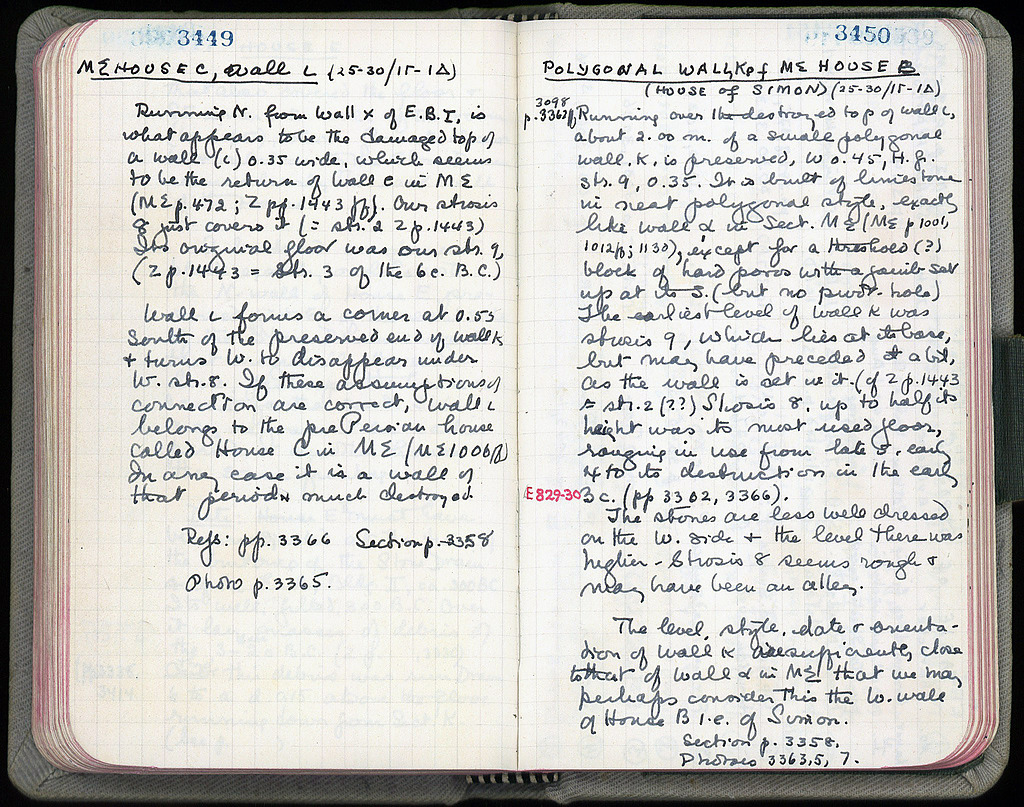 3449
ΜΣ HOUSE C, Wall ι (25-30/ΙΕ-ΙΔ)
Running N. from Wall x of E.B.I, is
what appears to be the damaged top of
a wall (ι) 0.35 wide, which seems
to be the return of wall c in ΜΣ
(ΜΣ p. 472; Ζ pp. 1443 ff). Our strosis
8 just covers it (= str. 2 Ζ p. 1443)
Its original floor was our str. 9,
(Ζ p. 1443 = Str. 3 of the 6 c. B.C.)
Wall ι forms a corner at 0.55
South of the preserved end of wall κ
+ turns W. to disappear under
W. str. 8. If these assumptions of
connection are correct, wall ι
belongs to the prePersian house
called House C in ΜΣ (ΜΣ 1006 ff)
In any case it is a wall of
that period & much destroyed
Refs: pp. 3366 Section p. 3358
Photo p. 3365.
3450
POLYGONAL WALL, κ of ΜΣ HOUSE B
(HOUSE of SIMON) (25-30/ΙΕ-ΙΔ)
3098
p. 3363 ff,
Running over the destroyed top of wall ι,
about 2.00 m. of a small polygonal
wall, κ, is preserved, W 0.45, H. fr.
str. 9, 0.35. It is built of limestone
in neat polygonal style, exactly
like wall α in Sect. ΜΣ (ΜΣ p 1001,
1012 ff; 1130), except for a threshold (?)
block of hard poros set
up at its S. (but no pivot-hole)
The earliest level of wall κ was
strosis 9, which lies at its base,
but may have preceded it a bit,
as the wall is set in it. (cf Ζ p. 1443
= str. 2 (??) Strosis 8, up to half its
height was its most used floor,
ranging in use from late 5, early
4 to its destruction in the early
3 c. (pp 3302, 3366).
E 829-30
The stones are less well dressed
on the W. side + the level there was
higher - Strosis 8 seems rough &
may have been an alley.
The level, style, date & orienta-
tion of wall κ are sufficiently close
to that of wall α in ΜΣ that we may
perhaps consider this the W. wall
of House B i.e. of Simon.
Section p. 3358.
Photos 3363, 5, 7.